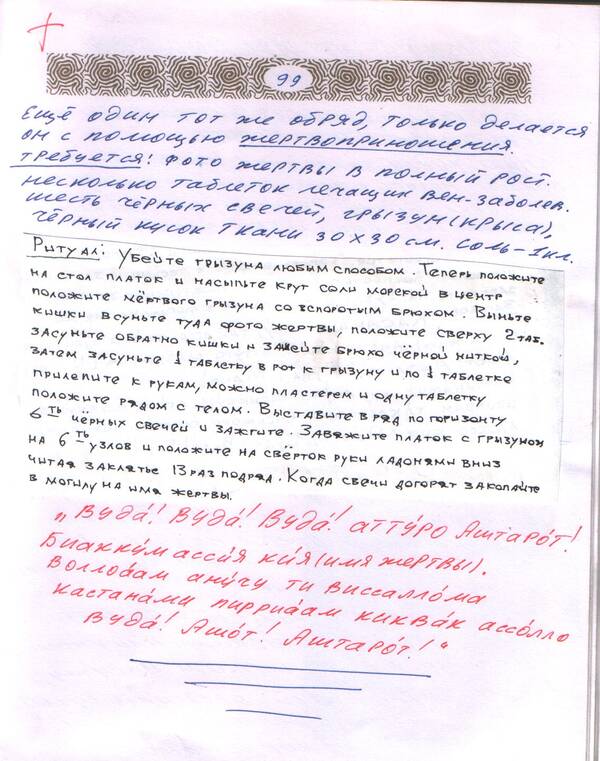 99
Ещё один тот же обряд, только делается
он с помощью жертвоприношения.
требуется: фото жертвы в полный рост.
несколько таблеток лечащих вен-заболев.
шесть чёрных свечей, грызун (крыса),
чёрный кусок ткани 30х30 см. соль-1кг.
Ритуал: Убейте грызуна любым способом. Теперь положите
на стол платок и насыпьте круг соли морской в центр
положите мёртвого грызуна со вспоротым брюхом. Выньте
кишки всуньте туда фото жертвы, положите сверху 2 таб.
засуньте обратно кишки и зашейте брюхо чёрной ниткой,
затем засуньте 1 таблетку в рот к грызуну и по 1 таблетке
прилепите к рукам, можно пластерем и одну таблетку
положите рядом с телом. Выставите в ряд по горизонту
6ть чёрных свечей и зажгите. Завяжите платок с грызуном
на 6ть узлов и положите на свёрток руки ладонями вниз
читая заклятье 13 раз подряд. Когда свечи догорят закопайте
в могилу на имя жертвы.
„Вуда́! Вуда́! Вуда́! аттýро Аштаро́т!
Биаккýм асси́я ки́я (имя жертвы).
Воллоáам анýчу ти виссалло́ма
кастанáми пирриáам киквáк ассо́лло
Вуда́! Ашо́т! Аштаро́т!“